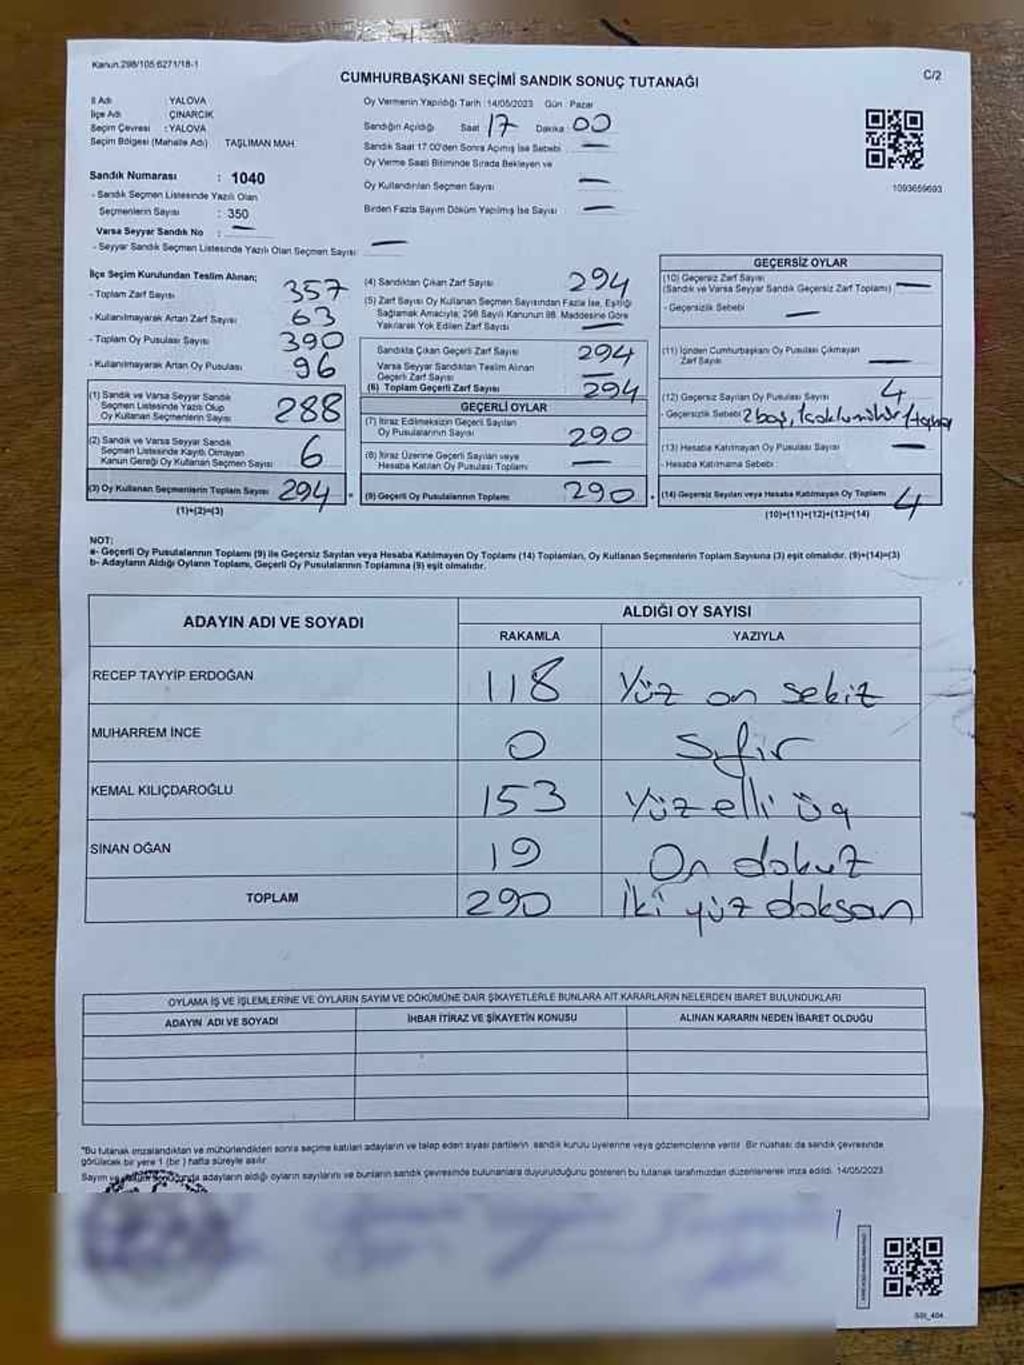 Kanun.298/105.6271/18-1
C/2
CUMHURBAŞKANI SEÇİMİ SANDIK SONUÇ TUTANAĞI
İl Adı YALOVA
İlçe Adı ÇINARCIK
Seçim Çevresi : YALOVA
Seçim Bölgesi (Mahalle Adı) TAŞLIMAN MAH.
Oy Vermenin Yapıldığı Tarih :14/05/2023 Gün : Pazar
Sandığın Açıldığı Saat 17 Dakika : 00
Sandık Saat 17.00'den Sonra Açılmış İse Sebebi : —
Oy Verme Saati Bitiminde Sırada Bekleyen ve
Oy Kullandırılan Seçmen Sayısı —
Birden Fazla Sayım Döküm Yapılmış İse Sayısı : —
1093659693
Sandık Numarası : 1040
- Sandık Seçmen Listesinde Yazılı Olan
Seçmenlerin Sayısı : 350
Varsa Seyyar Sandık No : —
- Seyyar Sandık Seçmen Listesinde Yazılı Olan Seçmen Sayısı: —
İlçe Seçim Kurulundan Teslim Alınan;
- Toplam Zarf Sayısı 357
- Kullanılmayarak Artan Zarf Sayısı 63
- Toplam Oy Pusulası Sayısı 390
- Kullanılmayarak Artan Oy Pusulası 96
(1) Sandık ve Varsa Seyyar Sandık
Seçmen Listesinde Yazılı Olup
Oy Kullanan Seçmenlerin Sayısı 288
(2) Sandık ve Varsa Seyyar Sandık
Seçmen Listesinde Kayıtlı Olmayan
Kanun Gereği Oy Kullanan Seçmen Sayısı 6
(3) Oy Kullanan Seçmenlerin Toplam Sayısı 294 =
(1)+(2)=(3)
(4) Sandıktan Çıkan Zarf Sayısı 294
(5) Zarf Sayısı Oy Kullanan Seçmen Sayısından Fazla İse, Eşitliği
Sağlamak Amacıyla; 298 Sayılı Kanunun 98. Maddesine Göre
Yakılarak Yok Edilen Zarf Sayısı —
Sandıkta Çıkan Geçerli Zarf Sayısı 294
Varsa Seyyar Sandıktan Teslim Alınan
Geçerli Zarf Sayısı —
(6) Toplam Geçerli Zarf Sayısı 294
GEÇERLİ OYLAR
(7) İtiraz Edilmeksizin Geçerli Sayılan
Oy Pusulalarının Sayısı 290
(8) İtiraz Üzerine Geçerli Sayılan veya
Hesaba Katılan Oy Pusulası Toplamı —
(9) Geçerli Oy Pusulalarının Toplamı 290 +
GEÇERSİZ OYLAR
(10) Geçersiz Zarf Sayısı
(Sandık ve Varsa Seyyar Sandık Geçersiz Zarf Toplamı) —
- Geçersizlik Sebebi —
(11) İçinden Cumhurbaşkanı Oy Pusulası Çıkmayan
Zarf Sayısı —
(12) Geçersiz Sayılan Oy Pusulası Sayısı 4
- Geçersizlik Sebebi 2 boş,
(13) Hesaba Katılmayan Oy Pusulası Sayısı —
- Hesaba Katılmama Sebebi
(14) Geçersiz Sayılan veya Hesaba Katılmayan Oy Toplamı 4
(10)+(11)+(12)+(13)=(14)
NOT:
a- Geçerli Oy Pusulalarının Toplamı (9) ile Geçersiz Sayılan veya Hesaba Katılmayan Oy Toplamı (14) Toplamları, Oy Kullanan Seçmenlerin Toplam Sayısına (3) eşit olmalıdır. (9)+(14)=(3)
b- Adayların Aldığı Oyların Toplamı, Geçerli Oy Pusulalarının Toplamına (9) eşit olmalıdır.
ADAYIN ADI VE SOYADI ALDIĞI OY SAYISI
RAKAMLA YAZIYLA
RECEP TAYYİP ERDOĞAN 118 Yüz on sekiz
MUHARREM İNCE 0 Sıfır
KEMAL KILIÇDAROĞLU 153 Yüz elli üç
SİNAN OĞAN 19 On dokuz
TOPLAM 290 İki yüz doksan
OYLAMA İŞ VE İŞLEMLERİNE VE OYLARIN SAYIM VE DÖKÜMÜNE DAİR ŞİKAYETLERLE BUNLARA AİT KARARLARIN NELERDEN İBARET BULUNDUKLARI
ADAYIN ADI VE SOYADI İHBAR İTİRAZ VE ŞİKAYETİN KONUSU ALINAN KARARIN NEDEN İBARET OLDUĞU
*Bu tutanak imzalandıktan ve mühürlendikten sonra seçime katılan adayların ve talep eden siyasi partilerin sandık kurulu üyelerine veya gözlemcilerine verilir. Bir nüshası da sandık çevresinde
görülecek bir yere 1 (bir) hafta süreyle asılır.
Sayım ve döküm sonucunda adayların aldığı oyların sayılarını ve bunların sandık çevresinde bulunanlara duyurulduğunu gösteren bu tutanak tarafımızdan düzenlenerek imza edildi. 14/05/2023